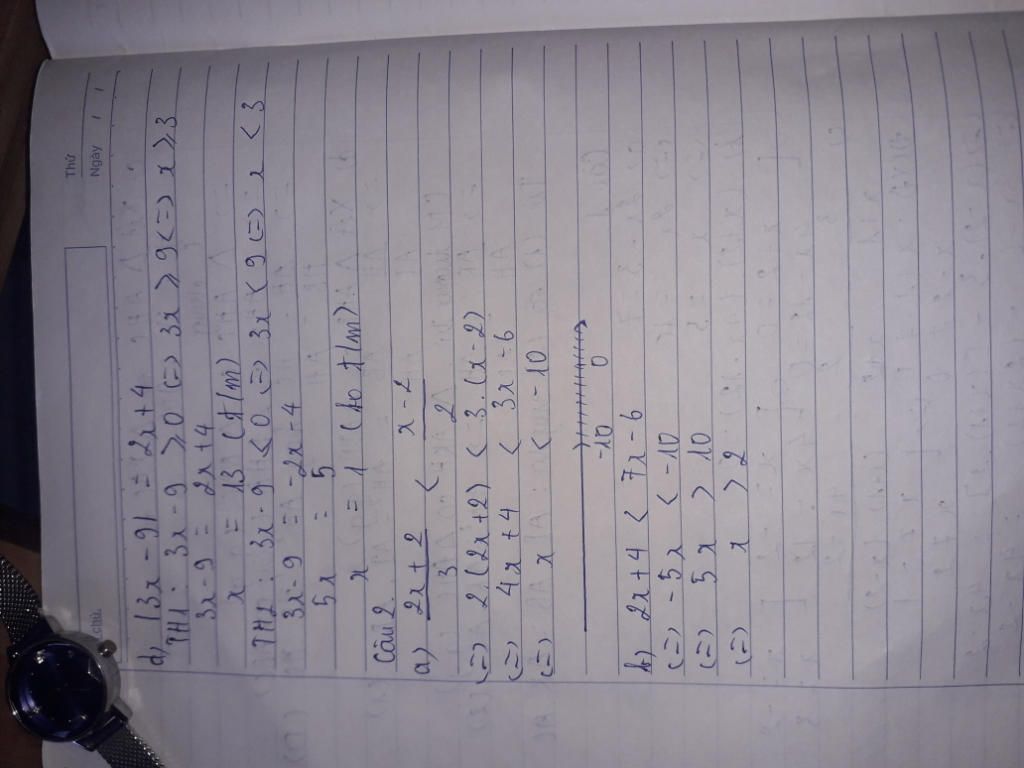 Thứ
Ngày / /
chú.
d) |3x - 9| = 2x+4
TH1: 3x - 9 ⩾ 0 (=) 3x ⩾ 9 <=> x ⩾ 3
3x - 9 = 2x + 4
x = 13 (t/m)
TH2: 3x - 9 < 0 (=) 3x < 9 (=) x < 3
3x - 9 = -2x - 4
5x = 5
x = 1 (ko t/m)
Câu 2.
a) (2x + 2)/3 < (x - 2)/2
(=) 2(2x+2) < 3.(x-2)
(=) 4x + 4 < 3x - 6
(=) x < -10
-10 0
b) 2x + 4 < 7x - 6
(=) -5x < -10
(=) 5x > 10
(=) x > 2